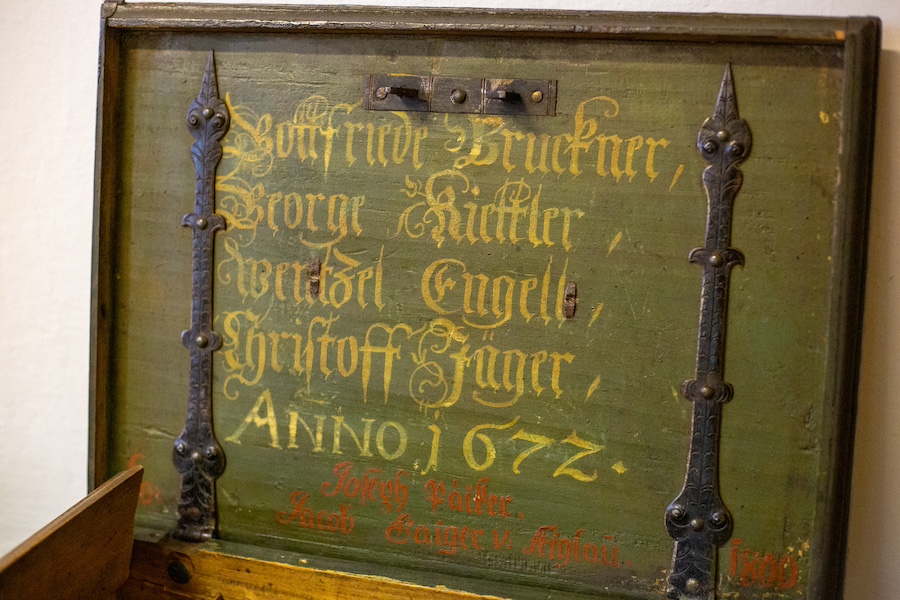 Gottfriede Bruckner,
George Kiettler,
Wentzel Engell,
Christoff Jäger,
ANNO 1672.
Joseph
Jacob Gaiger v. Iglau.
1800